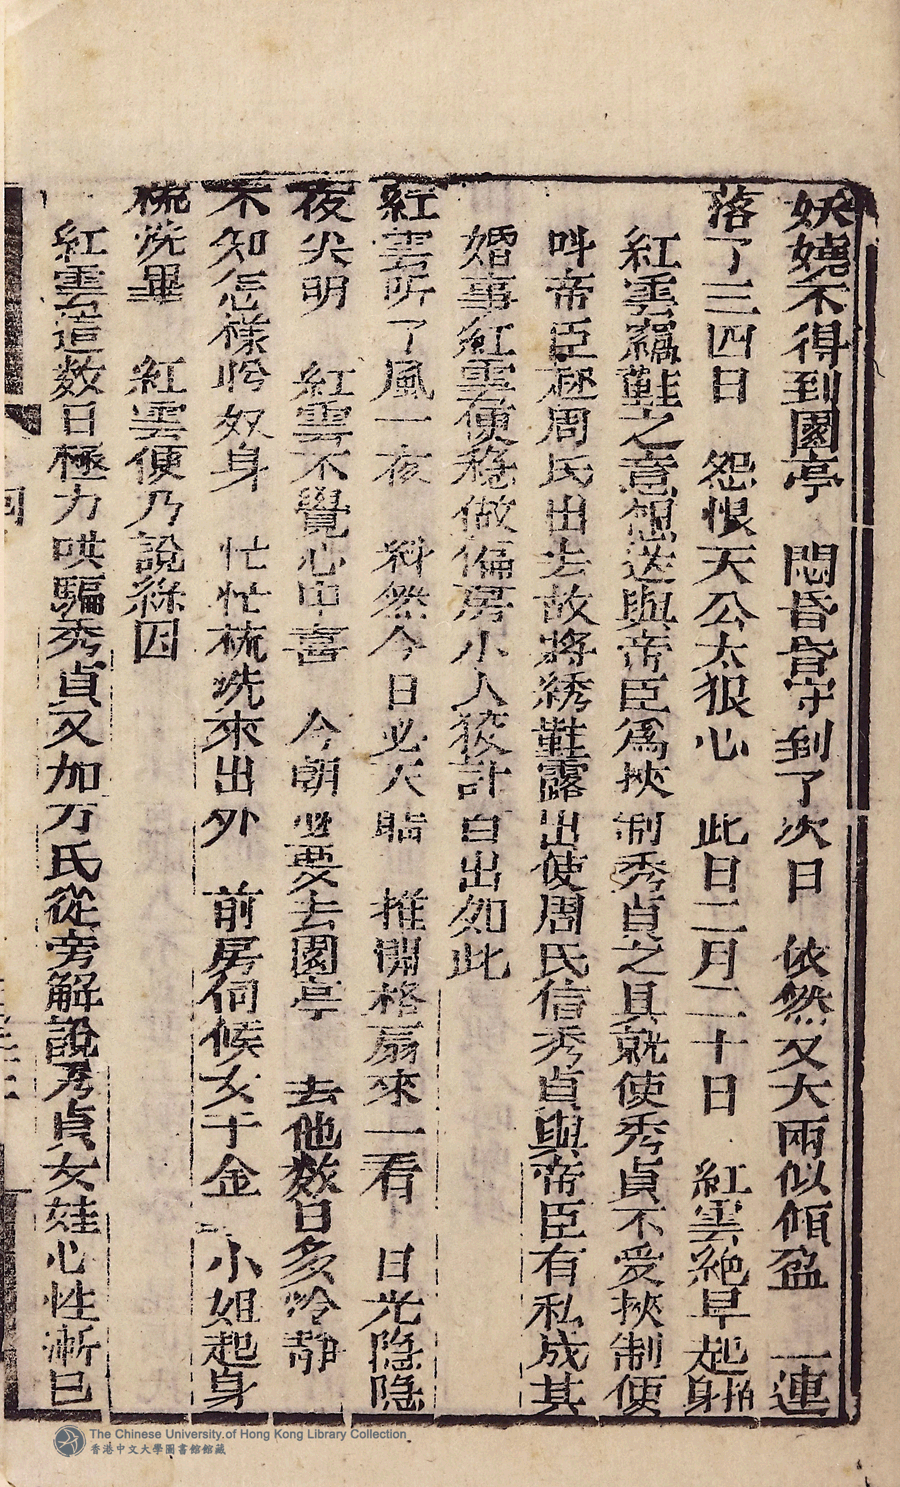 妖嬈不得到園亭　悶昏昏守到了次日　依然又大雨似傾盆　一連
落了三四日　怨恨天公太狠心　此日二月二十日　紅雲絕早起身招
紅雲竊鞋之意想送與帝臣爲挾制秀貞之具就使秀貞不受挾制便
呌帝臣趂周氏出去故將綉鞋露出使周氏信秀貞與帝臣有私成其
婚事紅雲便穩做偏房小人狡計白出如此
紅雲听了風一夜　料然今日必天晴　推開格扇來一看　日光隐隐
夜尖明　紅雲不覺心中喜　今朝必要去園亭　去他数日多冷靜
不知怎樣盼奴身　忙忙梳洗來出外　前房伺候女千金　小姐起身
梳洗畢　紅雲便乃說綠因
紅雲這数日極力哄騙秀貞又加万氏從旁解說乃貞女娃心性漸已
The Chinese University of Hong Kong Library Collection
香港中文大學圖書館館藏